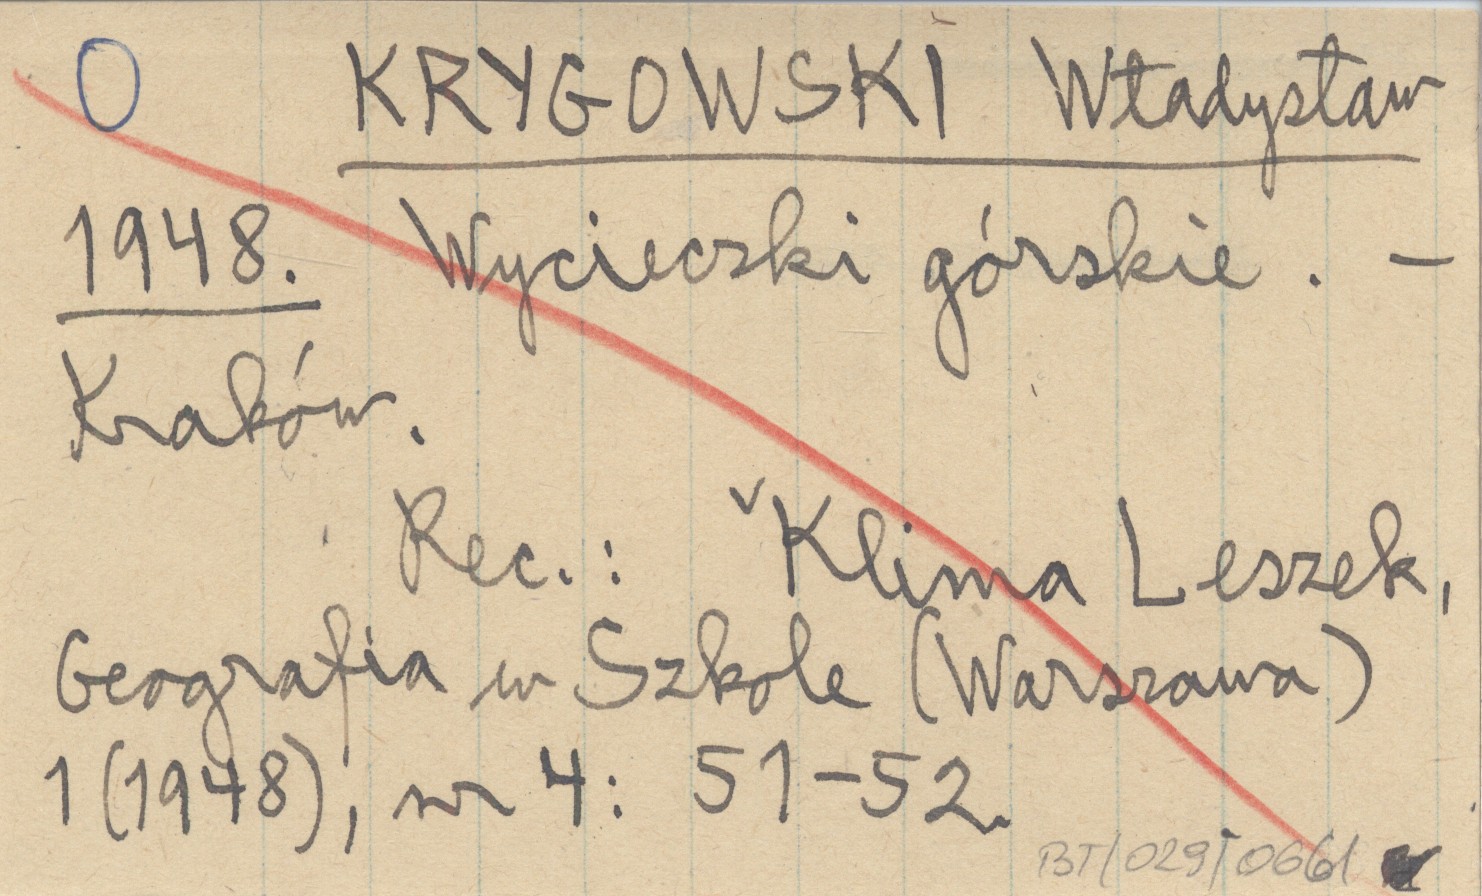 O KRYGOWSKI Władysław
1948. Wycieczki górskie. –
Kraków.
Rec.: Klima Leszek,
Geografia w Szkole (Warszawa)
1 (1948), nr 4: 51–52.
BT/029/0661